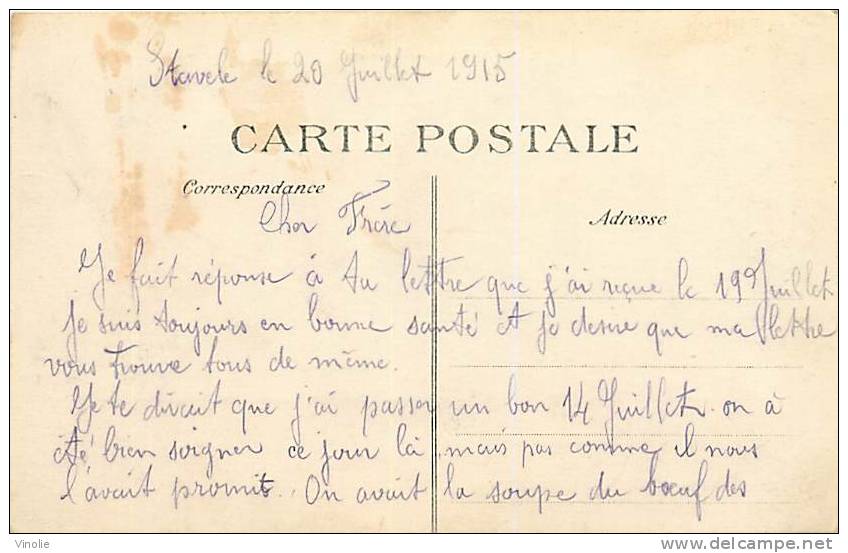 Stavele le 20 Juillet 1915
CARTE POSTALE
Correspondance
Adresse
Cher Frère
Je fait réponse à ta lettre que j'ai reçue le 19 Juillet
je suis toujours en bonne santé et je desire que ma lettre
vous trouve tous de même.
Je te dirait que j'ai passer un bon 14 Juillet on à
été bien soigner ce jour là, mais pas comme il nous
l'avait promit. On avait la soupe du bœuf des
Vinolie
www.delcampe.net